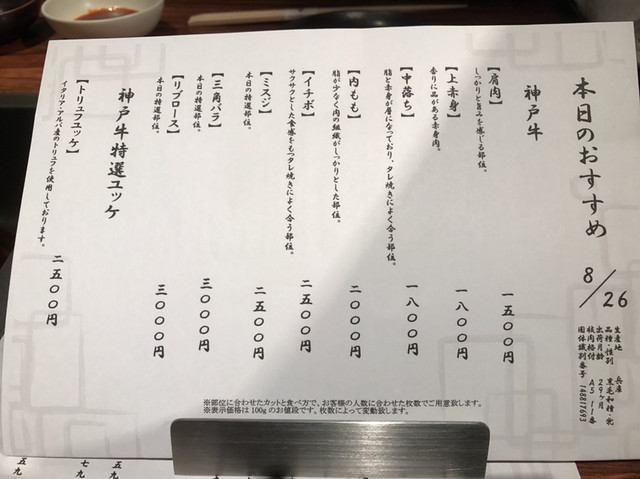 本日のおすすめ
8/26
生産地 兵庫
品種・性別 黒毛和種・牝
出荷月齢 29ヶ月
枝肉格付 A5 11番
固体識別番号 148817693
神戸牛
【肩肉】
しっかりと旨みを感じる部位。
一五〇〇円
【上赤身】
香りに品がある赤身肉。
一八〇〇円
【中落ち】
脂と赤身が層になっており、タレ焼きによく合う部位。
一八〇〇円
【内もも】
脂が少なく肉の組織がしっかりとした部位。
二〇〇〇円
【イチボ】
サクサクとした食感をもつタレ焼きによく合う部位。
二五〇〇円
【ミスジ】
本日の特選部位。
二五〇〇円
【三角バラ】
本日の特選部位。
三〇〇〇円
【リブロース】
本日の特選部位。
三〇〇〇円
神戸牛特選ユッケ
【トリュフユッケ】
イタリア・アルバ産のトリュフを使用しております。
二五〇〇円
※部位に合わせたカットと食べ方で、お客様の人数に合わせた枚数でご用意致します。
※表示価格は100gのお値段です。枚数によって変動致します。